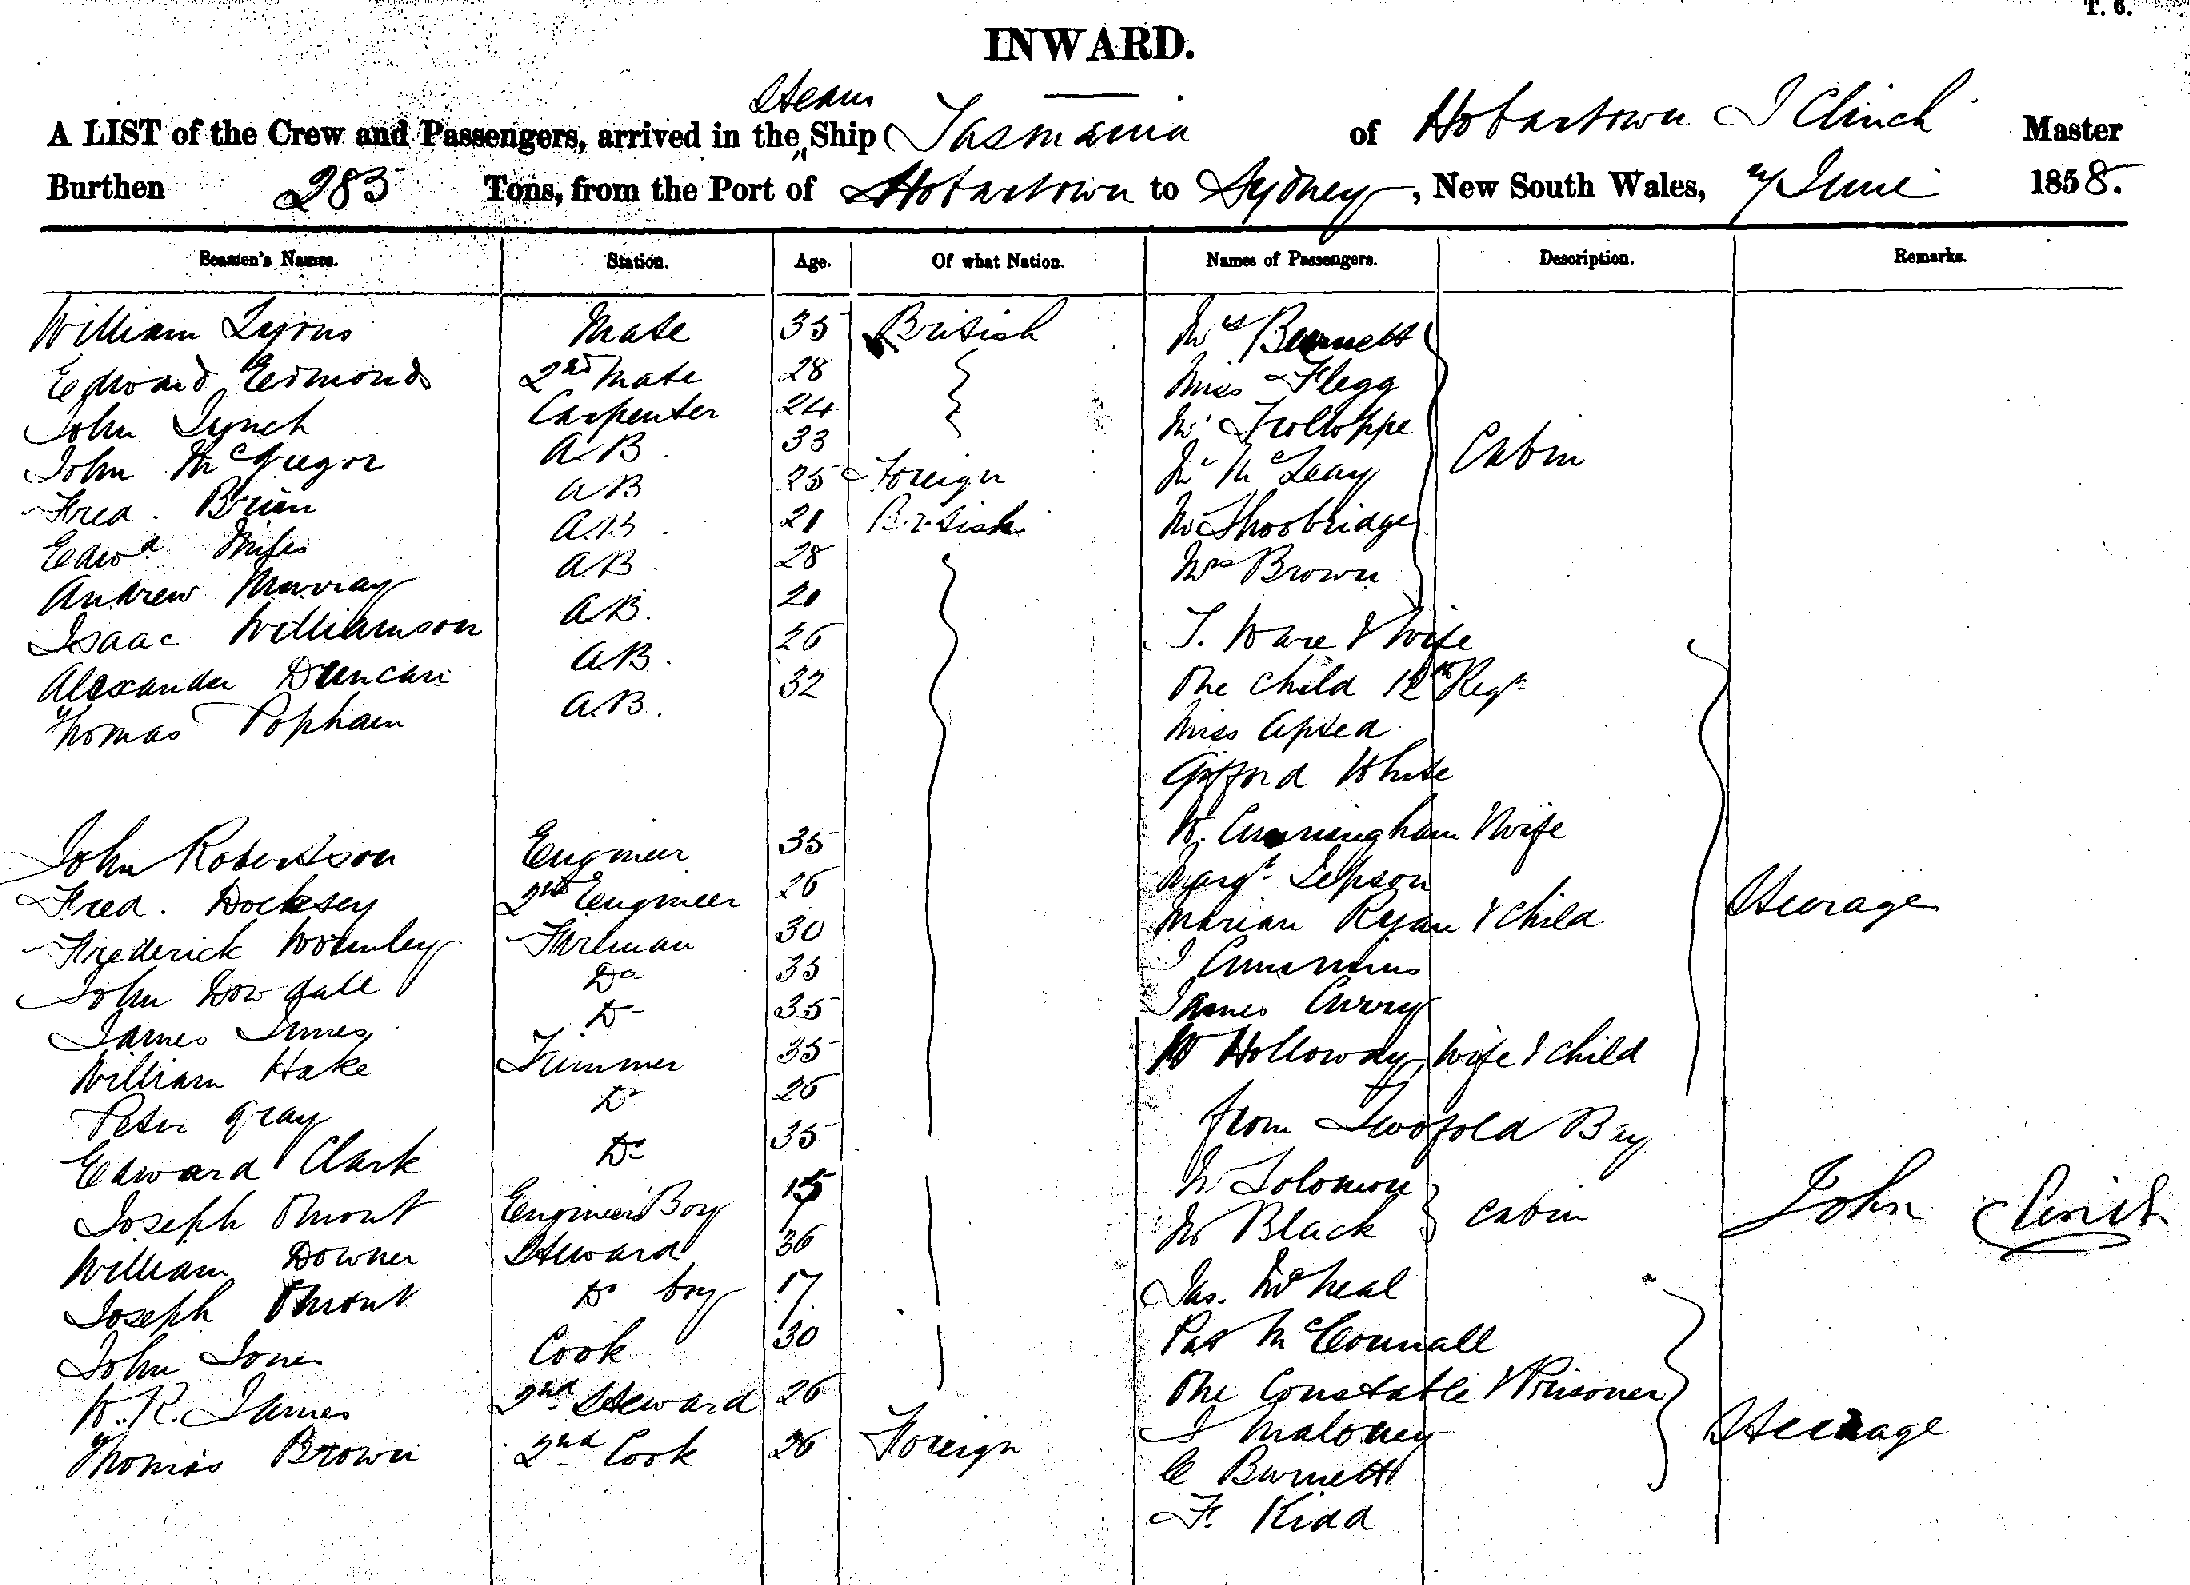 T. 6.
INWARD.
Steam
A LIST of the Crew and Passengers, arrived in the Ship Tasmania of Hobartown J Clinch Master
Burthen 283 Tons, from the Port of Hobartown to Sydney, New South Wales, 7 June 1858.
Seamen's Names. Station. Age. Of what Nation. Names of Passengers. Description. Remarks.
William Lyons Mate 35 British Mrs Burnett
Edward Edmonds 2nd Mate 28 Miss Flegg
John Lynch Carpenter 24 Mr Trolloppe
John McGregor AB 33 Mr McLeay Cabin
Fred. Brien AB 25 Foreign Mr Shoobridge
Edwd Miles AB 21 British Mrs Brown
Andrew Murray AB 28 T. Ware & Wife
Isaac Williamson AB. 21 One Child 12th Regt
Alexander Duncan AB. 26 Miss Apsed
Thomas Popham AB. 32 Gifford White
W. Cunningham & Wife
John Robertson Engineer 35 Margt Jepson
Fred. Docksey 2nd Engineer 26 Marian Ryan & Child Steerage
Frederick Fireman 30 J Cummins
John Dowdall Do 35 James Curry
James Innes Do 35 W Holloway, Wife & Child
William Hake Trimmer 35 from Twofold Bay
Peter Gray Do 26 Mr Solomon
Edward Clark Do 35 Mr Black Cabin
Joseph Engineers Boy 15 Jas. McNeal John Clinch
William Downer Steward 36 Pat McConnall
Joseph Do boy 17 One Constable & Prisoner
John Jones Cook 30 J Maloney Steerage
W. R. James 2nd Steward 26 C Burnett
Thomas Brown 2nd Cook 26 Foreign F. Kidd